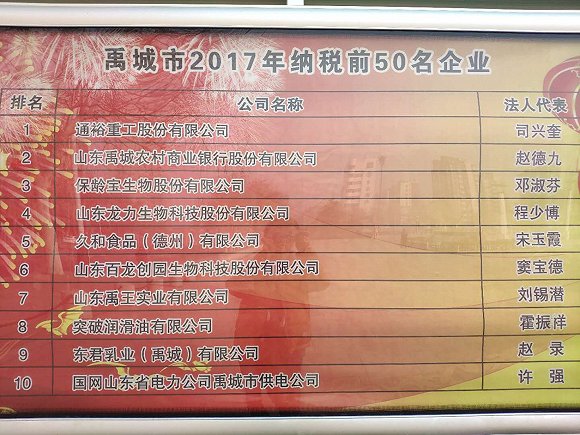 禹城市2017年纳税前50名企业
排名 公司名称 法人代表
1 通裕重工股份有限公司 司兴奎
2 山东禹城农村商业银行股份有限公司 赵德九
3 保龄宝生物股份有限公司 邓淑芬
4 山东龙力生物科技股份有限公司 程少博
5 久和食品（德州）有限公司 宋玉霞
6 山东百龙创园生物科技股份有限公司 窦宝德
7 山东禹王实业有限公司 刘锡潜
8 突破润滑油有限公司 霍振洋
9 东君乳业（禹城）有限公司 赵 录
10 国网山东省电力公司禹城市供电公司 许 强